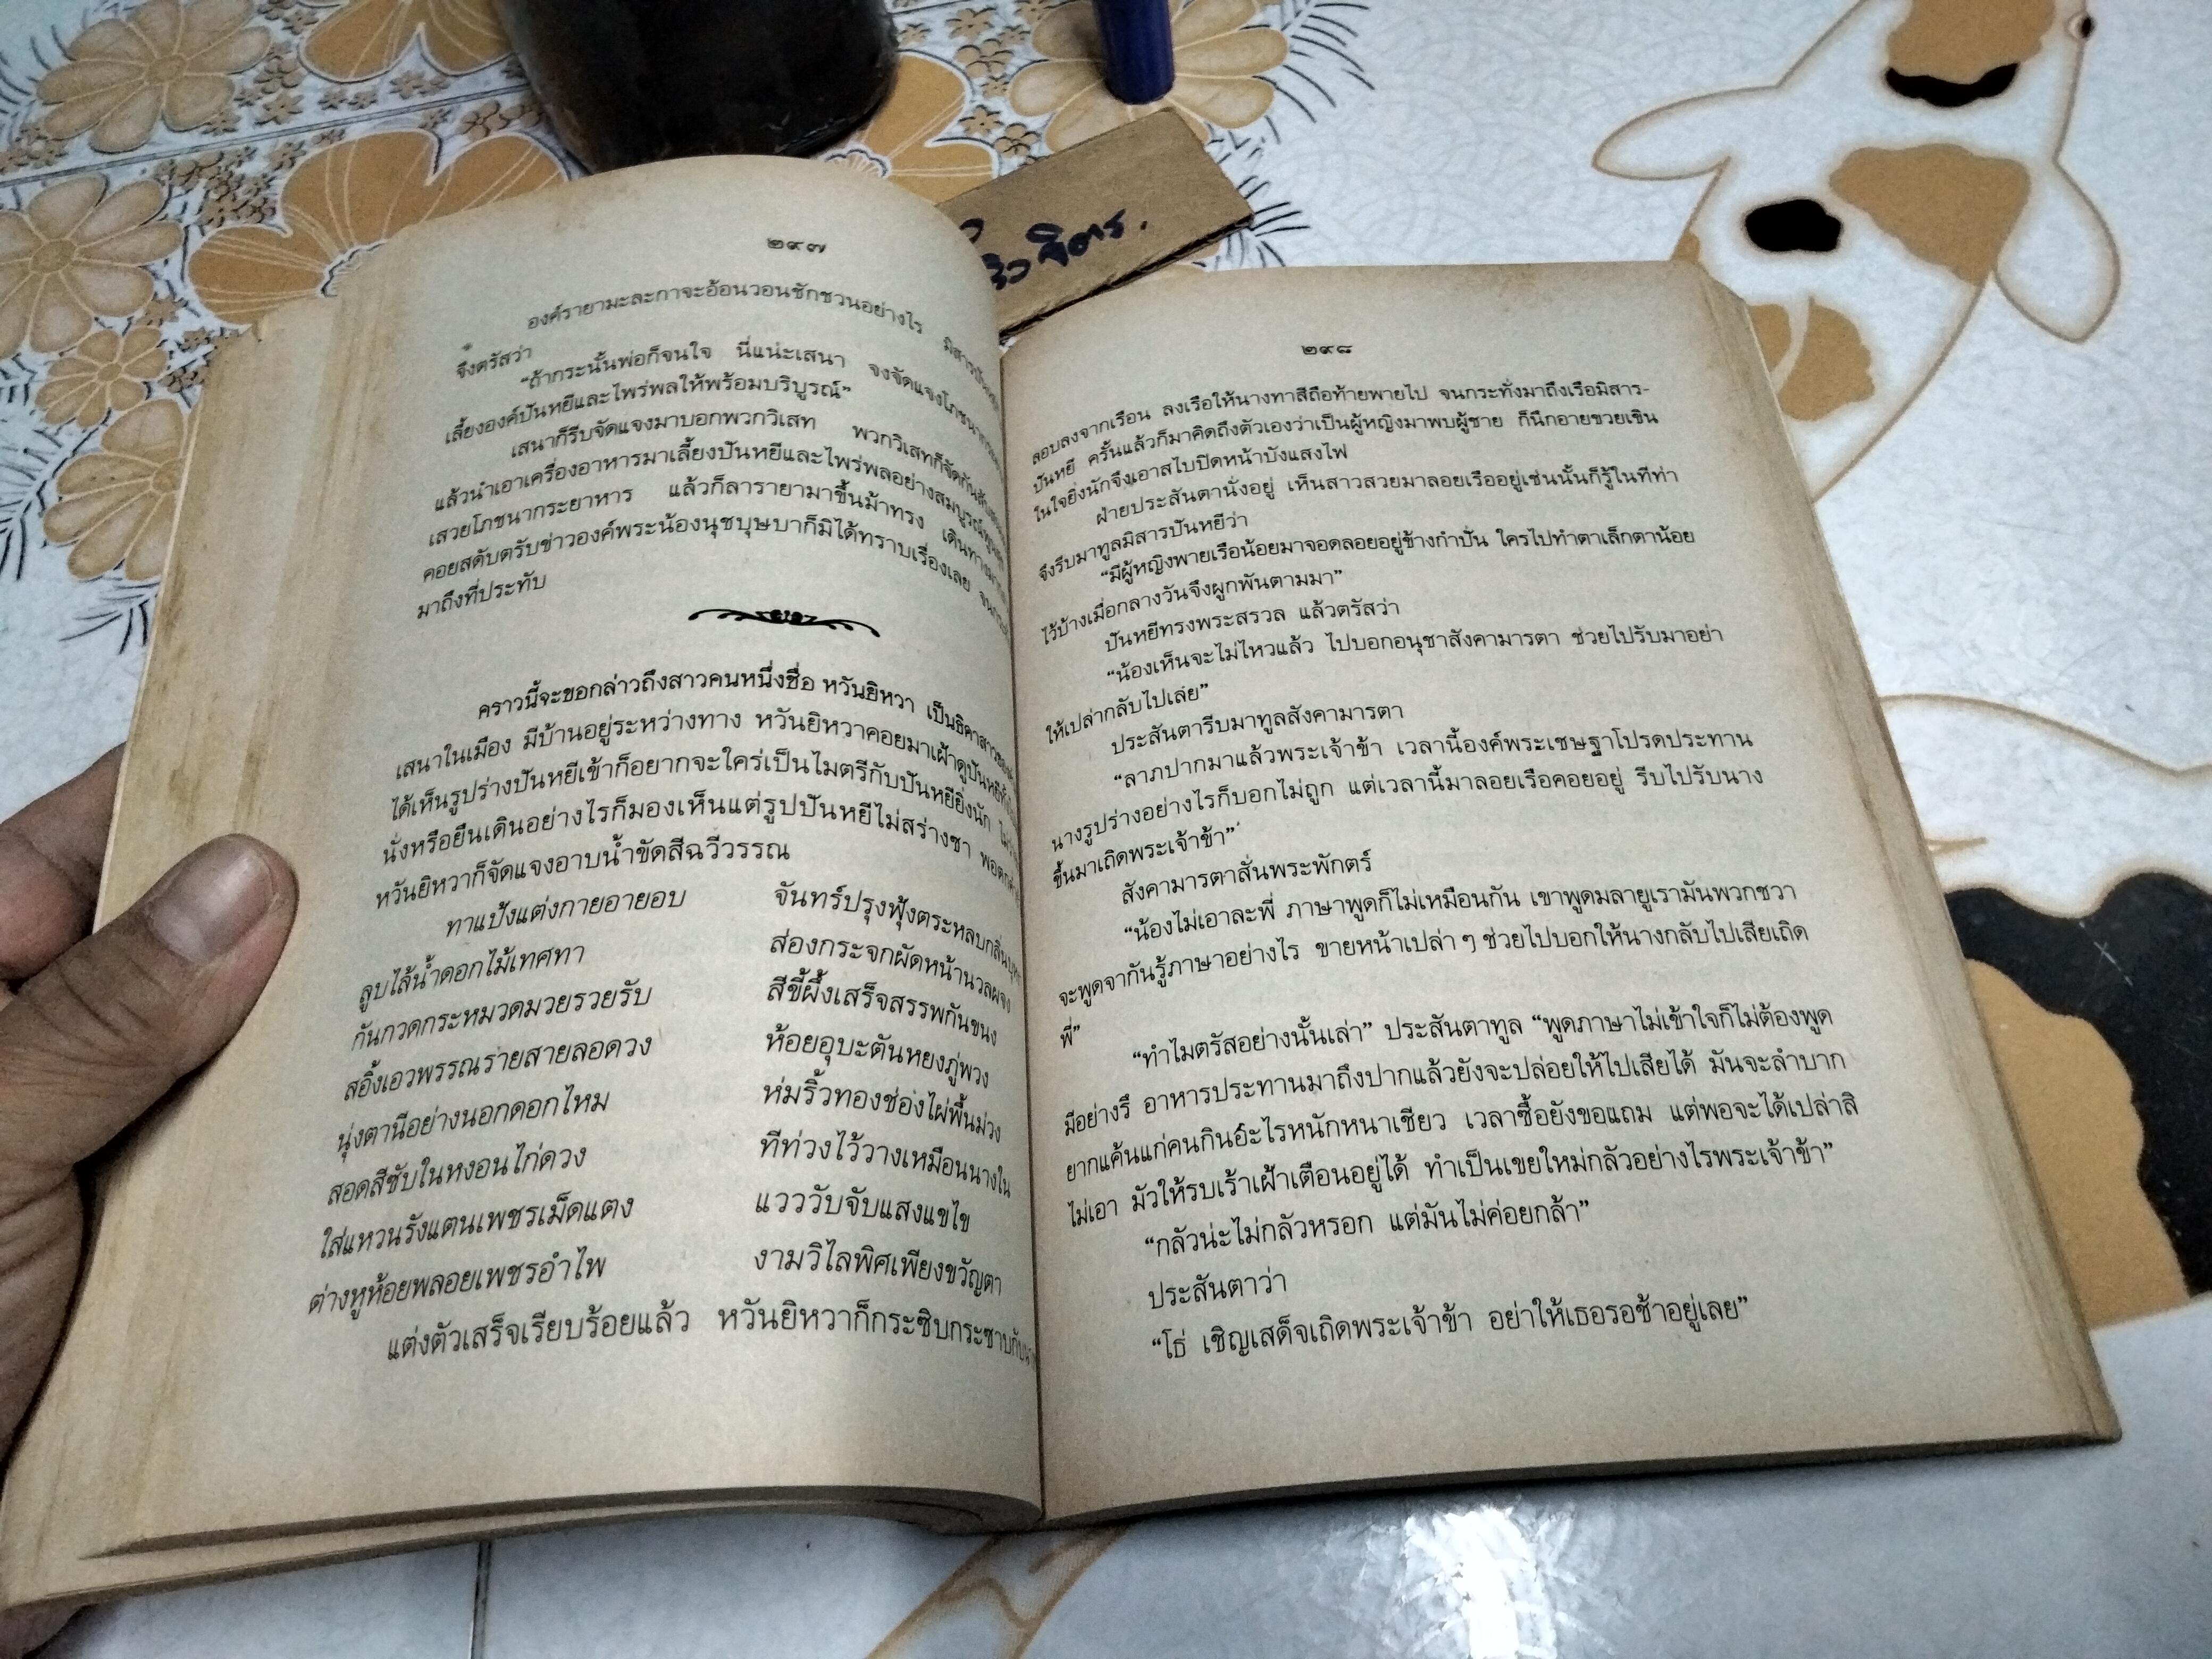 ๒๙๗
องค์รายามะละกาจะอ้อนวอนชักชวนอย่างไร มิสารปันหยี
จึงตรัสว่า
“ถ้ากระนั้นพ่อก็จนใจ นี่แน่ะเสนา จงจัดแจงโภชนา
เลี้ยงองค์ปันหยีและไพร่พลให้พร้อมบริบูรณ์”
เสนาก็รีบจัดแจงมาบอกพวกวิเสท พวกวิเสทก็จัดกัน
แล้วนำเอาเครื่องอาหารมาเลี้ยงปันหยีและไพร่พลอย่างสมบูรณ์
เสวยโภชนากระยาหาร แล้วก็ลารายามาขึ้นม้าทรง เดินทาง
คอยสดับตรับข่าวองค์พระน้องนุชบุษบาก็มิได้ทราบเรื่องเลย
มาถึงที่ประทับ
คราวนี้จะขอกล่าวถึงสาวคนหนึ่งชื่อ หวันยิหวา เป็นธิดาสาว
เสนาในเมือง มีบ้านอยู่ระหว่างทาง หวันยิหวาคอยมาเฝ้าดูปันหยี
ได้เห็นรูปร่างปันหยีเข้าก็อยากจะใคร่เป็นไมตรีกับปันหยียิ่งนัก
นั่งหรือยืนเดินอย่างไรก็มองเห็นแต่รูปปันหยีไม่สร่างซา
หวันยิหวาก็จัดแจงอาบน้ำขัดสีฉวีวรรณ
ทาแป้งแต่งกายอายอบ จันทร์ปรุงฟุ้งตระหลบกลิ่น
ลูบไล้น้ำดอกไม้เทศทา ส่องกระจกผัดหน้านวลผจง
กันกวดกระหมวดมวยรวยรับ สีขี้ผึ้งเสร็จสรรพกันขนง
สอิ้งเอวพรรณรายสายลอดวง ห้อยอุบะตันหยงภู่พวง
นุ่งตานีอย่างนอกดอกไหม ห่มริ้วทองช่องไผ่พื้นม่วง
สอดสีซับในหงอนไก่ดวง ทีท่วงไว้วางเหมือนนางใน
ใส่แหวนรังแตนเพชรเม็ดแตง แวววับจับแสงแขไข
ต่างหูห้อยพลอยเพชรอำไพ งามวิไลพิศเพียงขวัญตา
แต่งตัวเสร็จเรียบร้อยแล้ว หวันยิหวาก็กระซิบกระซาบกับ
๒๙๘
ลอบลงจากเรือน ลงเรือให้นางทาสีถือท้ายพายไป จนกระทั่งมาถึงเรือมิสาร-
ปันหยี ครั้นแล้วก็มาคิดถึงตัวเองว่าเป็นผู้หญิงมาพบผู้ชาย ก็นึกอายขวยเขิน
ในใจยิ่งนักจึงเอาสไบปิดหน้าบังแสงไฟ
ฝ่ายประสันตานั่งอยู่ เห็นสาวสวยมาลอยเรืออยู่เช่นนั้นก็รู้ในทีท่า
จึงรีบมาทูลมิสารปันหยีว่า
“มีผู้หญิงพายเรือน้อยมาจอดลอยอยู่ข้างกำปั่น ใครไปทำตาเล็กตาน้อย
ไว้บ้างเมื่อกลางวันจึงผูกพันตามมา”
ปันหยีทรงพระสรวล แล้วตรัสว่า
“น้องเห็นจะไม่ไหวแล้ว ไปบอกอนุชาสังคามารตา ช่วยไปรับมาอย่า
ให้เปล่ากลับไปเล่ย”
ประสันตารีบมาทูลสังคามารตา
“ลาภปากมาแล้วพระเจ้าข้า เวลานี้องค์พระเชษฐาโปรดประทาน
นางรูปร่างอย่างไรก็บอกไม่ถูก แต่เวลานี้มาลอยเรือคอยอยู่ รีบไปรับนาง
ขึ้นมาเถิดพระเจ้าข้า”
สังคามารตาสั่นพระพักตร์
“น้องไม่เอาละพี่ ภาษาพูดก็ไม่เหมือนกัน เขาพูดมลายูเรามันพวกชวา
จะพูดจากันรู้ภาษาอย่างไร ขายหน้าเปล่า ๆ ช่วยไปบอกให้นางกลับไปเสียเถิด
พี่”
“ทำไมตรัสอย่างนั้นเล่า” ประสันตาทูล “พูดภาษาไม่เข้าใจก็ไม่ต้องพูด
มีอย่างรึ อาหารประทานมาถึงปากแล้วยังจะปล่อยให้ไปเสียได้ มันจะลำบาก
ยากแค้นแก่คนกินอะไรหนักหนาเชียว เวลาซื้อยังขอแถม แต่พอจะได้เปล่าสิ
ไม่เอา มัวให้รบเร้าเฝ้าเตือนอยู่ได้ ทำเป็นเขยใหม่กลัวอย่างไรพระเจ้าข้า”
“กลัวน่ะไม่กลัวหรอก แต่มันไม่ค่อยกล้า”
ประสันตาว่า
“โธ่ เชิญเสด็จเถิดพระเจ้าข้า อย่าให้เธอรอช้าอยู่เลย”